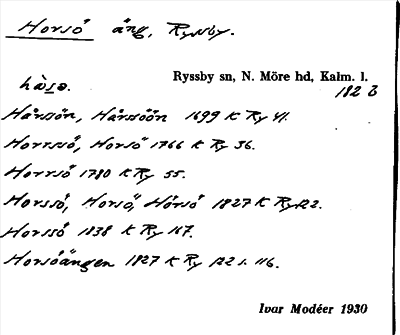 Horsö äng, Ryssby.
Ryssby sn, N. Möre hd, Kalm. l.
182 B
hàsə.
Hårsön, Hårsöön 1699 K Ry 41.
Horrssö, Horsö 1766 K Ry 36.
Horrsö 1780 K Ry 55.
Horssö, Horsö, Hörsö 1827 K Ry 122.
Horssö 1838 K Ry 167.
Horsöängen 1827 K Ry 122 s. 116.
Ivar Modéer 1930